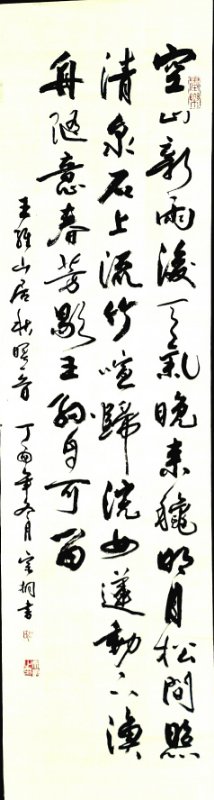 空山新雨後天氣晚來穐明月松間照
清泉石上流竹喧歸浣女蓮動下漁
舟隨意春芳歇王孫自可留
王維山居秋暝 丁酉年冬月 桐書